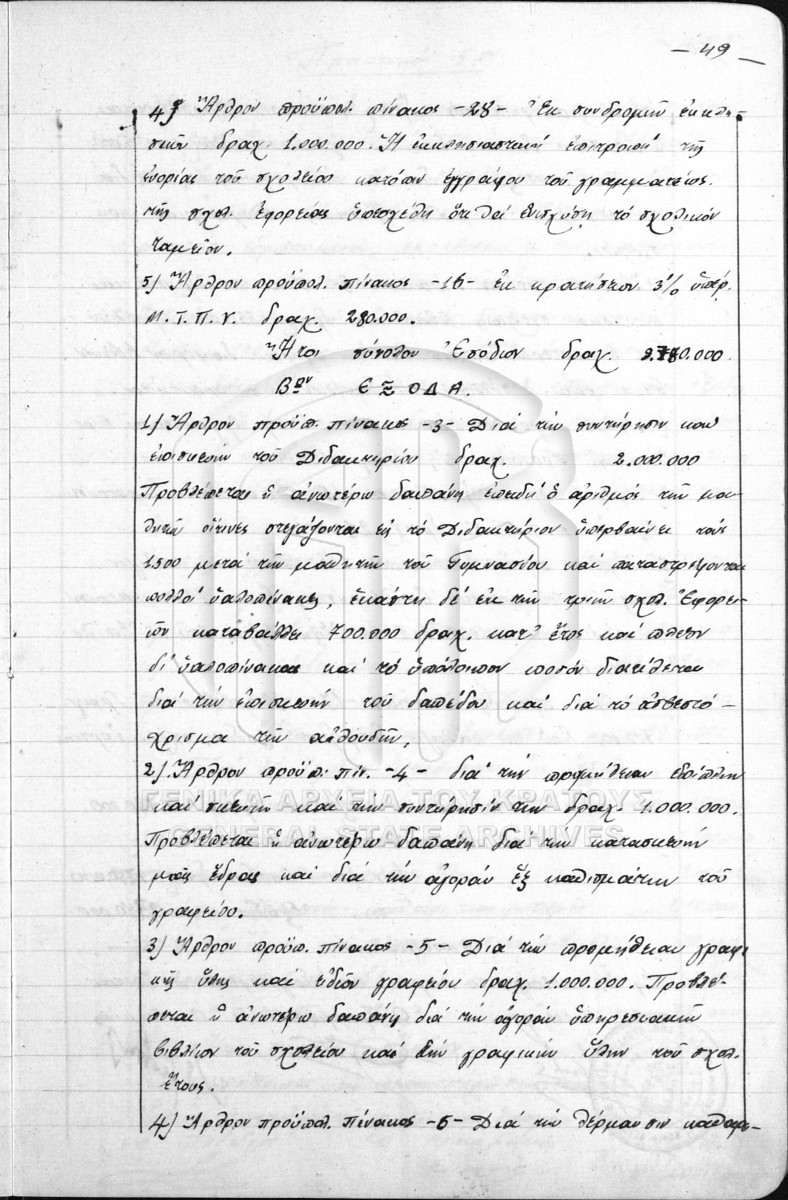 — 49 —
4) Ἄρθρον προϋπολ. πίνακος -28- Ἐκ συνδρομῆς ἐκκλη-
σιῶν δραχ. 1.000.000. Ἡ ἐκκλησιαστική ἐπιτροπή τῆς
ἐνορίας τοῦ σχολείου κατόπιν ἐγγράφου τοῦ γραμματέως
τῆς σχολ. Ἐφορείας ὑπεσχέθη ὅτι θά ἐνισχύσῃ τό σχολικόν
ταμεῖον.
5) Ἄρθρον προϋπολ. πίνακος -16- ἐκ κρατήσεων 3% ὑπέρ
Μ.Τ.Π.Υ. δραχ. 280.000.
Ἤτοι σύνολον Ἐσόδων δραχ. 0.000.
Βον ΕΞΟΔΑ.
1) Ἄρθρον προϋπ. πίνακος -3- Διά τήν συντήρησιν καί
ἐπισκευήν τοῦ Διδακτηρίου δραχ. 2.000.000
Προβλέπεται ἡ ἀνωτέρω δαπάνη ἐπειδή ὁ ἀριθμός τῶν μα-
θητῶν οἵτινες στεγάζονται εἰς τό Διδακτήριον ὑπερβαίνει τούς
1500 μετά τῶν μαθητῶν τοῦ Γυμνασίου καί καταστρέφονται
πολλοί ὑαλοπίνακες, ἑκάστη δέ ἐκ τῶν τριῶν σχολ. Ἐφορει-
ῶν καταβάλλει 700.000 δραχ. κατ' ἔτος καί πλέον
δι' ὑαλοπίνακας καί τό ὑπόλοιπον ποσόν διατίθεται
διά τήν ἐπισκευήν τοῦ δαπέδου καί διά τό ἀσβεστό-
χρισμα τῶν αἰθουσῶν.
2) Ἄρθρον προϋπ. πιν. -4- διά τήν προμήθειαν ἐπίπλων
καί σκευῶν καί τήν συντήρησίν των δραχ. 1.000.000.
ΓΕΝΙΚΑ ΑΡΧΕΙΑ ΤΟΥ ΚΡΑΤΟΥΣ
GENERAL STATE ARCHIVES
Προβλέπεται ἡ ἀνωτέρω δαπάνη διά τήν κατασκευήν
μιᾶς ἕδρας καί διά τήν ἀγοράν ἕξ καθισμάτων τοῦ
γραφείου.
3) Ἄρθρον προϋπ. πίνακος -5- Διά τήν προμήθειαν γραφι-
κῆς ὕλης καί εἰδῶν γραφείου δραχ. 1.000.000. Προβλέ-
πεται ἡ ἀνωτέρω δαπάνη διά τήν ἀγοράν ὑπηρεσιακῶν
βιβλίων τοῦ σχολείου καί τήν γραφικήν ὕλην τοῦ σχολ.
ἔτους.
4) Ἄρθρον προϋπολ. πίνακος -6- Διά τήν θέρμανσιν καθαρι-